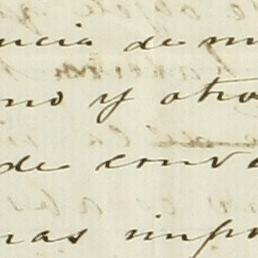 ncia de m
no y otro
de conv
nas impo